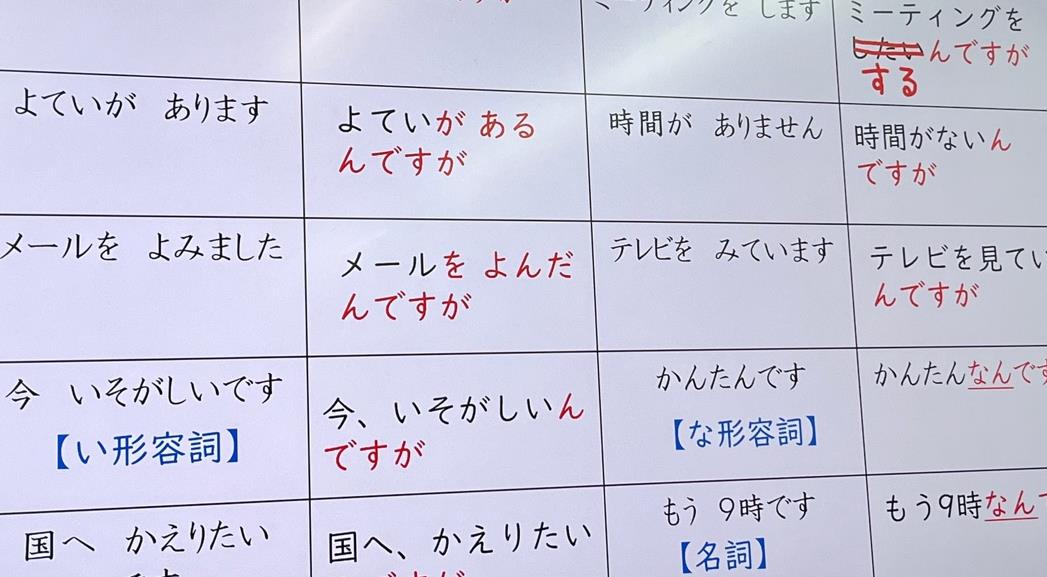 ミーティングを します
ミーティングを
したい んですが
する
よていが あります
よていが ある
んですが
時間が ありません
時間がないん
ですが
メールを よみました
メールを よんだ
んですが
テレビを みています
テレビを見てい
んですが
今 いそがしいです
【い形容詞】
今、いそがしいん
ですが
かんたんです
【な形容詞】
かんたんなんです
国へ かえりたい
国へ、かえりたい
んですが
もう 9時です
【名詞】
もう9時なんで